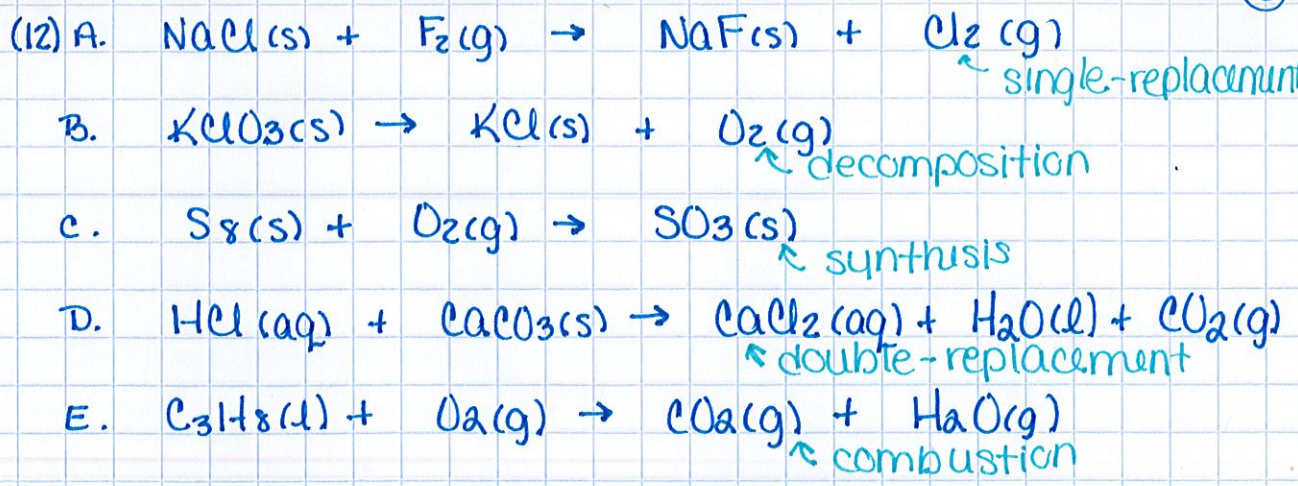 (12) A. NaCl(s) + F2(g) → NaF(s) + Cl2(g)
↖ single-replacement
B. KClO3(s) → KCl(s) + O2(g)
↖ decomposition
C. S8(s) + O2(g) → SO3(s)
↖ synthisis
D. HCl(aq) + CaCO3(s) → CaCl2(aq) + H2O(l) + CO2(g)
↖ double-replacement
E. C3H8(l) + O2(g) → CO2(g) + H2O(g)
↖ combustion